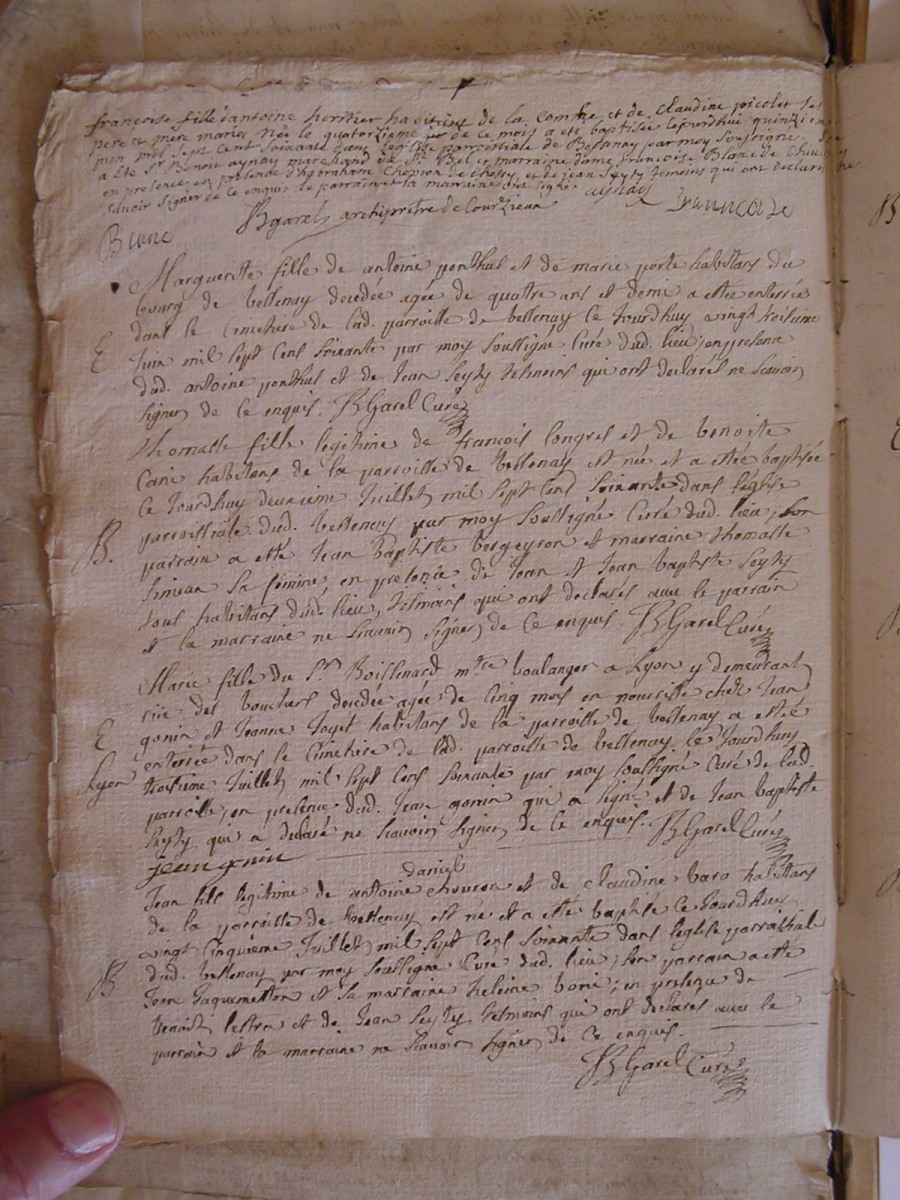 francoise fille d'antoine heritier habitant de la Combe et de claudine picolet ses
pere et mere mariés née le quatorzieme de ce mois a eté baptisée cejourdhui quinzieme
juin mil sept cent soixante dans l'eglise parroissiale de Bessenay par moy soussigné
a eté Sr. Benoit aynay marchand de St. Bel et marraine dame francoise Blanc de
en presence d'habraham de Chessy, et de jean Seyty temoins qui ont declaré ne
savoir signer de ce enquis le parrain et la marraine ont signé aynay francoise
Blanc BGarel archiprêtre de Courzieu
Marguerite fille de antoine ponthus et de marie porte habitans du
bourg de bessenay decedée agée de quatre ans et demi a estée enterrée
E dans le cimetiere de lad. parroisse de bessenay ce Jourdhuy vingt troisieme
Juin mil sept cens soixante par moy soussigné curé dud. lieu, en presence
dud. antoine ponthus et de Jean Seyty tesmoins qui ont declarés ne scavoir
signer de ce enquis. BGarel Curé
Thomasse fille legitime de francois Longres et de benoite
habitans de la parroisse de bessenay est née et a estée baptisée
ce Jourdhuy deuxieme Juillet mil sept cens soixante dans l'eglise
parroissiale dud. bessenay par moy soussigné Curé dud. lieu, son
B. parrain a esté Jean Baptiste bergeyron et marraine thomasse
simeau sa femme, en presence de Jean et Jean baptiste Seyty
tous habitans dud. lieu, tesmoins qui ont declarés avec le parrain
et la marraine ne scavoir signer de ce enquis BGarel Curé
Marie fille du Sr Boissenard mtre boulanger a Lyon y demeurant
rüe des bouchers decedée agée de cinq mois en nourisse chez Jean
E gonin et Jeanne habitans de la parroisse de bessenay a estée
enterrée dans le cimetiere de lad. parroisse de bessenay ce Jourdhuy
Lyon troisieme Juillet mil sept cens soixante par moy soussigné Curé de lad.
parroisse, en presence dud. Jean gonin qui a signé et de Jean baptiste
Seyty qui a declaré ne scavoir signer de ce enquis. BGarel Curé
jean gonin
daniel
Jean fils legitime de antoine chouron et de claudine baro habitans
de la parroisse de bessenay est né et a esté baptisé ce Jourdhuy
vingt cinquieme Juillet mil sept cens soixante dans l'eglise parroissiale
B dud. bessenay par moy soussigné Curé dud. lieu, son parrain a esté
Jean Jaquemetton et sa marraine heleine boni, en presence de
benoist lestra et de Jean Seyty tesmoins qui ont declarés avec le
parrain et la marraine ne scavoir signer de ce enquis.
BGarel Curé